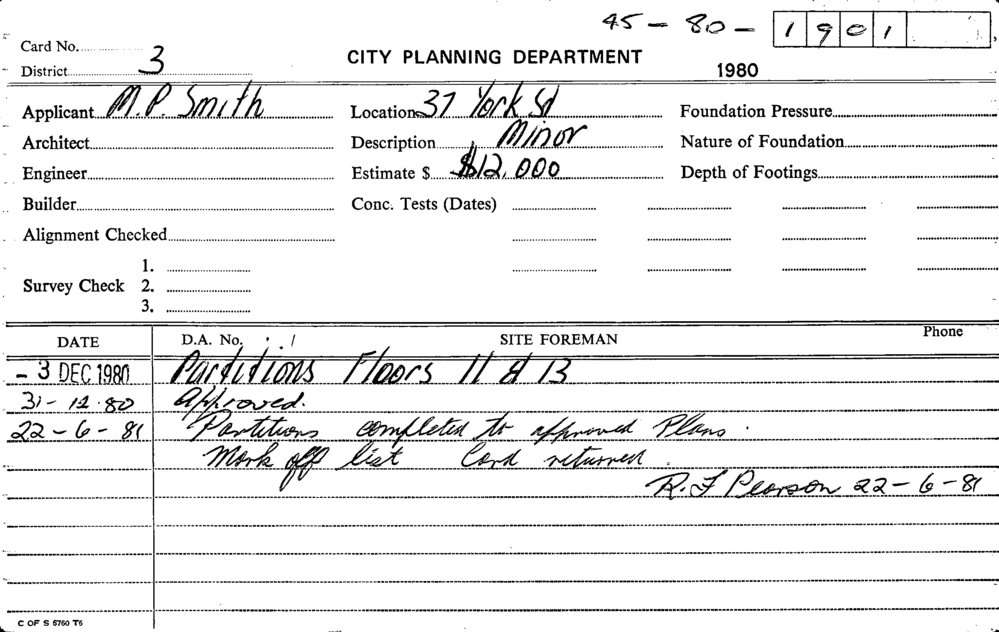 45 - 80 - 1901
Card No.
District 3
CITY PLANNING DEPARTMENT
1980
Applicant M.P. Smith
Location 37 York St
Foundation Pressure
Architect
Description Minor
Nature of Foundation
Engineer
Estimate $ $12,000
Depth of Footings
Builder
Conc. Tests (Dates)
Alignment Checked
Survey Check 1.
2.
3.
DATE D.A. No. SITE FOREMAN Phone
- 3 DEC 1980 Partitions Floors 11 & 13
31 - 12 . 80 Approved.
22 - 6 - 81 Partitions completed to approved Plans.
Mark off list Card returned.
R. F Pearson 22 - 6 - 81
C OF S 5760 T6